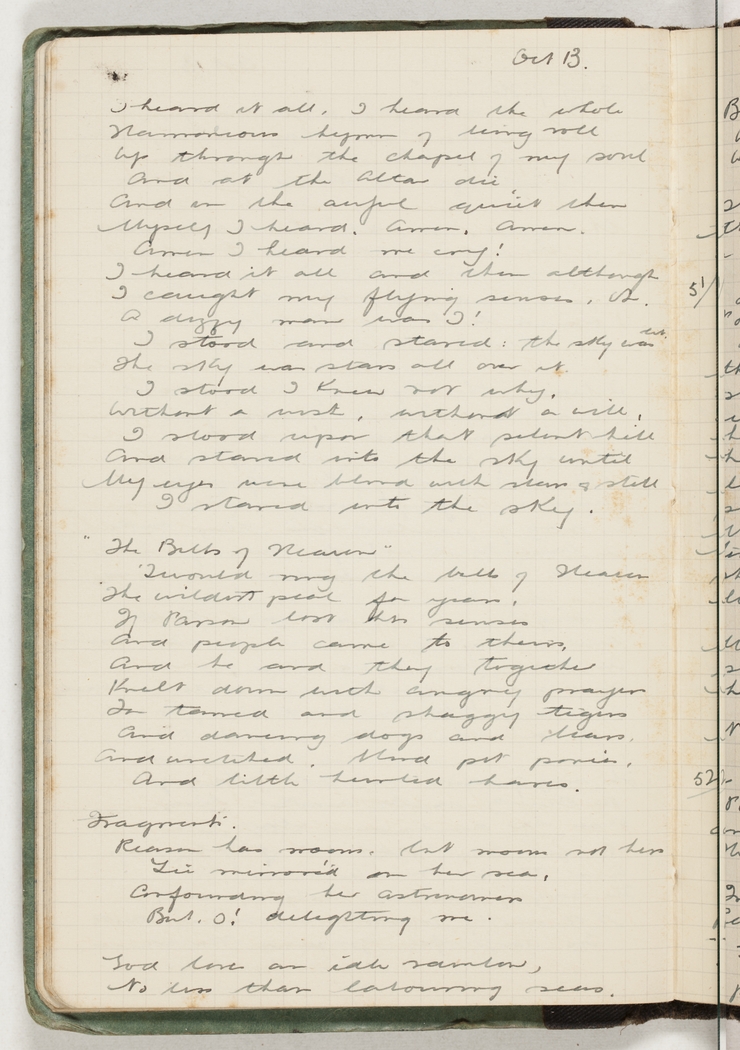 Oct 13.
I heard it all, I heard the whole
Harmonious hymn of being roll
Up through the chapel of my soul
And at the altar die,
And in the awful quiet then
Myself I heard, Amen, Amen,
Amen I heard me cry!
I heard it all and then although
I caught my flying senses, Oh.
A dizzy man was I!
I stood and stared: the sky was lit,
The sky was stars all over it.
I stood I knew not why,
Without a wish, without a will,
I stood upon that silent hill
And stared into the sky until
My eyes were blind with stars & still
I stared into the sky.
"The Bells of Heaven"
'Twould ring the bells of Heaven
The wildest peal for years,
If Parson lost his senses
And people came to theirs,
And he and they together
Knelt down with angry prayers
For tamed and shabby tigers
And dancing dogs and bears.
And wretched, blind pit ponies,
And little hunted hares.
Fragments.
Reason has moons, but moons not hers
Lie mirror'd on her sea,
Confounding her astronomers
But, O! delighting me.
God loves an idle rainbow,
No less than labouring seas.
51/
52